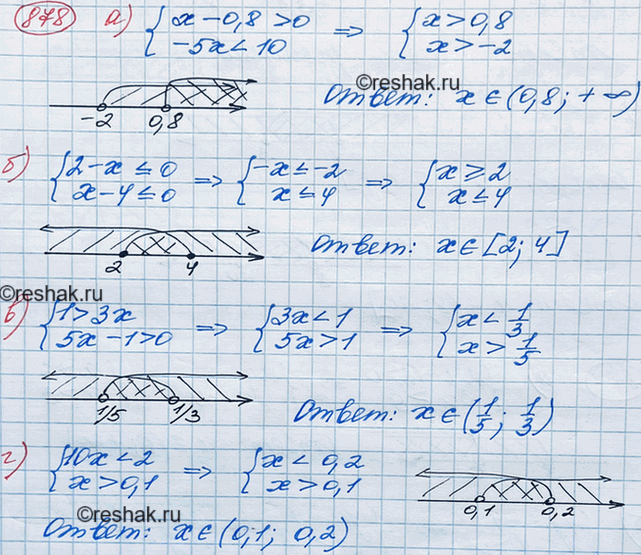 878 а) { x - 0,8 > 0 ; -5x < 10 ⇒ { x > 0,8 ; x > -2
©reshak.ru
-2 0,8 Ответ: x ∈ (0,8; +∞)
б) { 2 - x ≤ 0 ; x - 4 ≤ 0 ⇒ { -x ≤ -2 ; x ≤ 4 ⇒ { x ≥ 2 ; x ≤ 4
2 4 Ответ: x ∈ [2; 4]
©reshak.ru
в) { 1 > 3x ; 5x - 1 > 0 ⇒ { 3x < 1 ; 5x > 1 ⇒ { x < 1/3 ; x > 1/5
1/5 1/3 Ответ: x ∈ (1/5; 1/3)
©reshak.ru
г) { 10x < 2 ; x > 0,1 ⇒ { x < 0,2 ; x > 0,1
0,1 0,2
©reshak.ru
Ответ: x ∈ (0,1; 0,2)